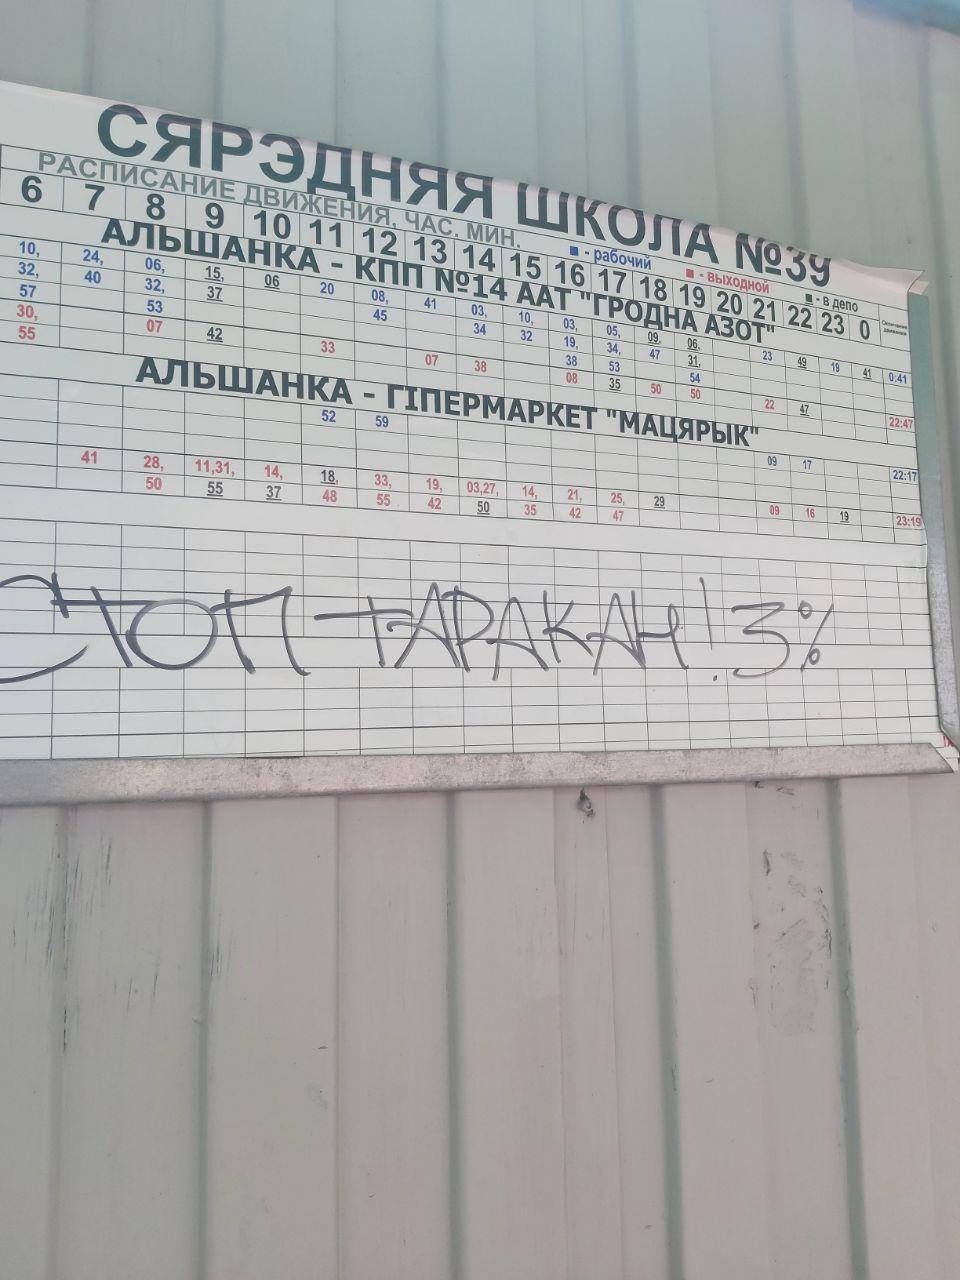 СЯРЭДНЯЯ ШКОЛА №39
РАСПИСАНИЕ ДВИЖЕНИЯ, ЧАС. МИН.
- рабочий - выходной - в депо
6 7 8 9 10 11 12 13 14 15 16 17 18 19 20 21 22 23 0 Окончание движения
АЛЬШАНКА - КПП №14 ААТ "ГРОДНА АЗОТ"
10, 24, 06, 15, 06 20 08, 41 03, 10, 03, 05, 09, 06, 23 49 19 41 0:41
32, 40 32, 37 45 34 32 19, 34, 47 31,
57 53 38 53 54
30, 07 42 33 07 38 08 35 50 50 22 47 22:47
55
АЛЬШАНКА - ГІПЕРМАРКЕТ "МАЦЯРЫК"
52 59 09 17 22:17
41 28, 11,31, 14, 18, 33, 19, 03,27, 14, 21, 25, 29 09 16 19 23:19
50 55 37 48 55 42 50 35 42 47
СТОП ТАРАКАН! 3%